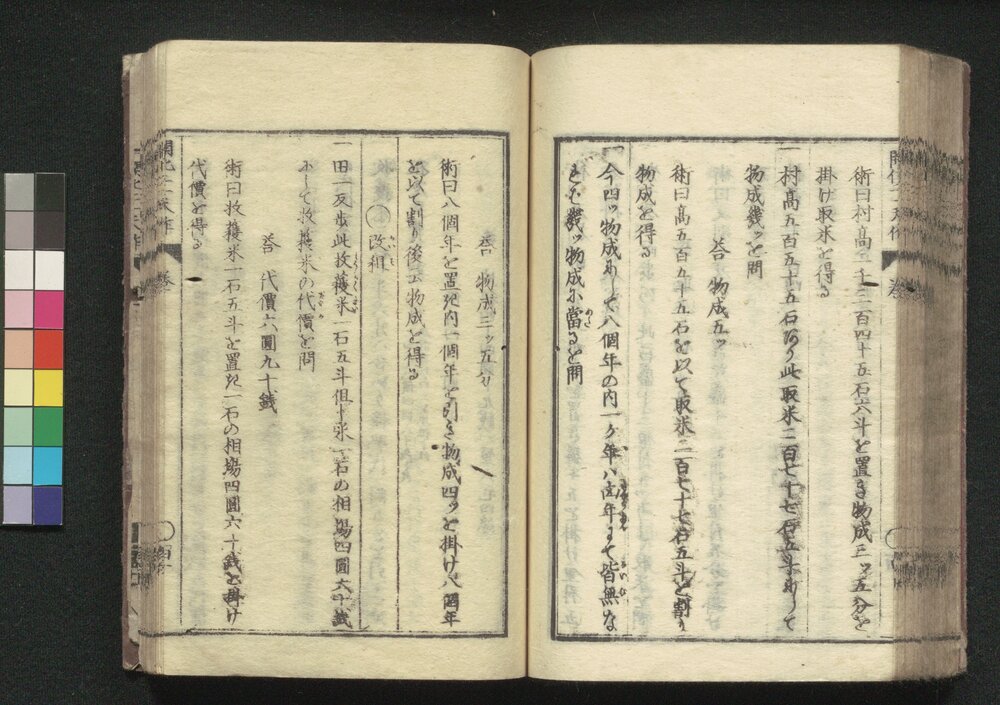 術曰村高二千三百四十五石六斗を置き物成三ッ五分を
掛け取米を得る
一村高五百五十五石あり此取米二百七十七石五斗ありて
物成幾ッを問
答 物成五ッ
術曰高五百五十五石を以て取米二百七十七石五斗を割り
物成を得る
一今四ッ物成ありて八個年の内一ヶ年ハ凶年にて皆無な
れバ幾ッ物成に當るを問
答 物成三ッ五分
術曰八個年を置き内一個年を引き物成四ッを掛け八個年
を以て割り後物成を得る
○改租
一田一反歩此收穫米一石五斗但十米一石の相場四圓六十錢
にして收穫米の代價を問
答 代價六圓九十錢
術曰收穫米一石五斗を置き一石の相場四圓六十錢を掛け
代價を得る